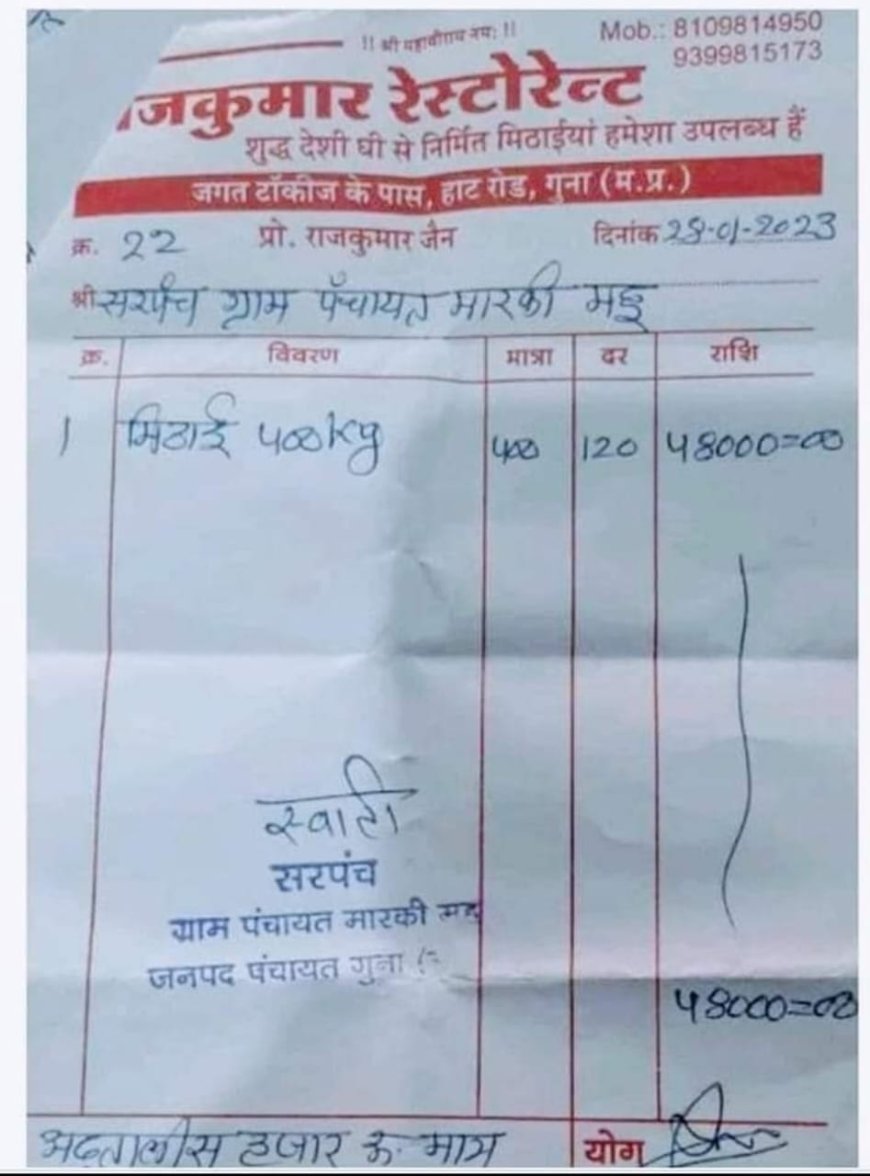 !! श्री महावीराय नमः !!
Mob.: 8109814950
9399815173
राजकुमार रेस्टोरेन्ट
शुद्ध देशी घी से निर्मित मिठाईयां हमेशा उपलब्ध हैं
जगत टॉकीज के पास, हाट रोड, गुना (म.प्र.)
क्र. 22 प्रो. राजकुमार जैन दिनांक 28-01-2023
श्री सरपंच ग्राम पँचायत मारकी महू
क्र. विवरण मात्रा दर राशि
1 मिठाई 400kg 400 120 48000=00
स्वाती
सरपंच
ग्राम पंचायत मारकी महू
जनपद पंचायत गुना (
48000=00
अडतालीस हजार रु. मात्र योग